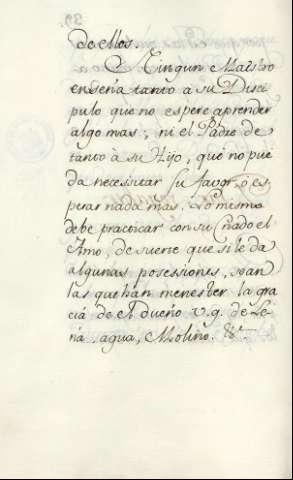 de ellos.
Ningun Maestro
enseña tanto à su Disci
pulo que no espere aprender
algo mas, ni el Padre dè
tanto à su Hijo, que no pue
da necesitar su favor, ò es
perar nada mas. Lo mesmo
debe practicar con su Criado el
Amo, de suerte que si le da
algunas posesiones, sean
las que hán menester la gra
cia de el dueño v.g. de Le
ña, agua, Molino. &ª